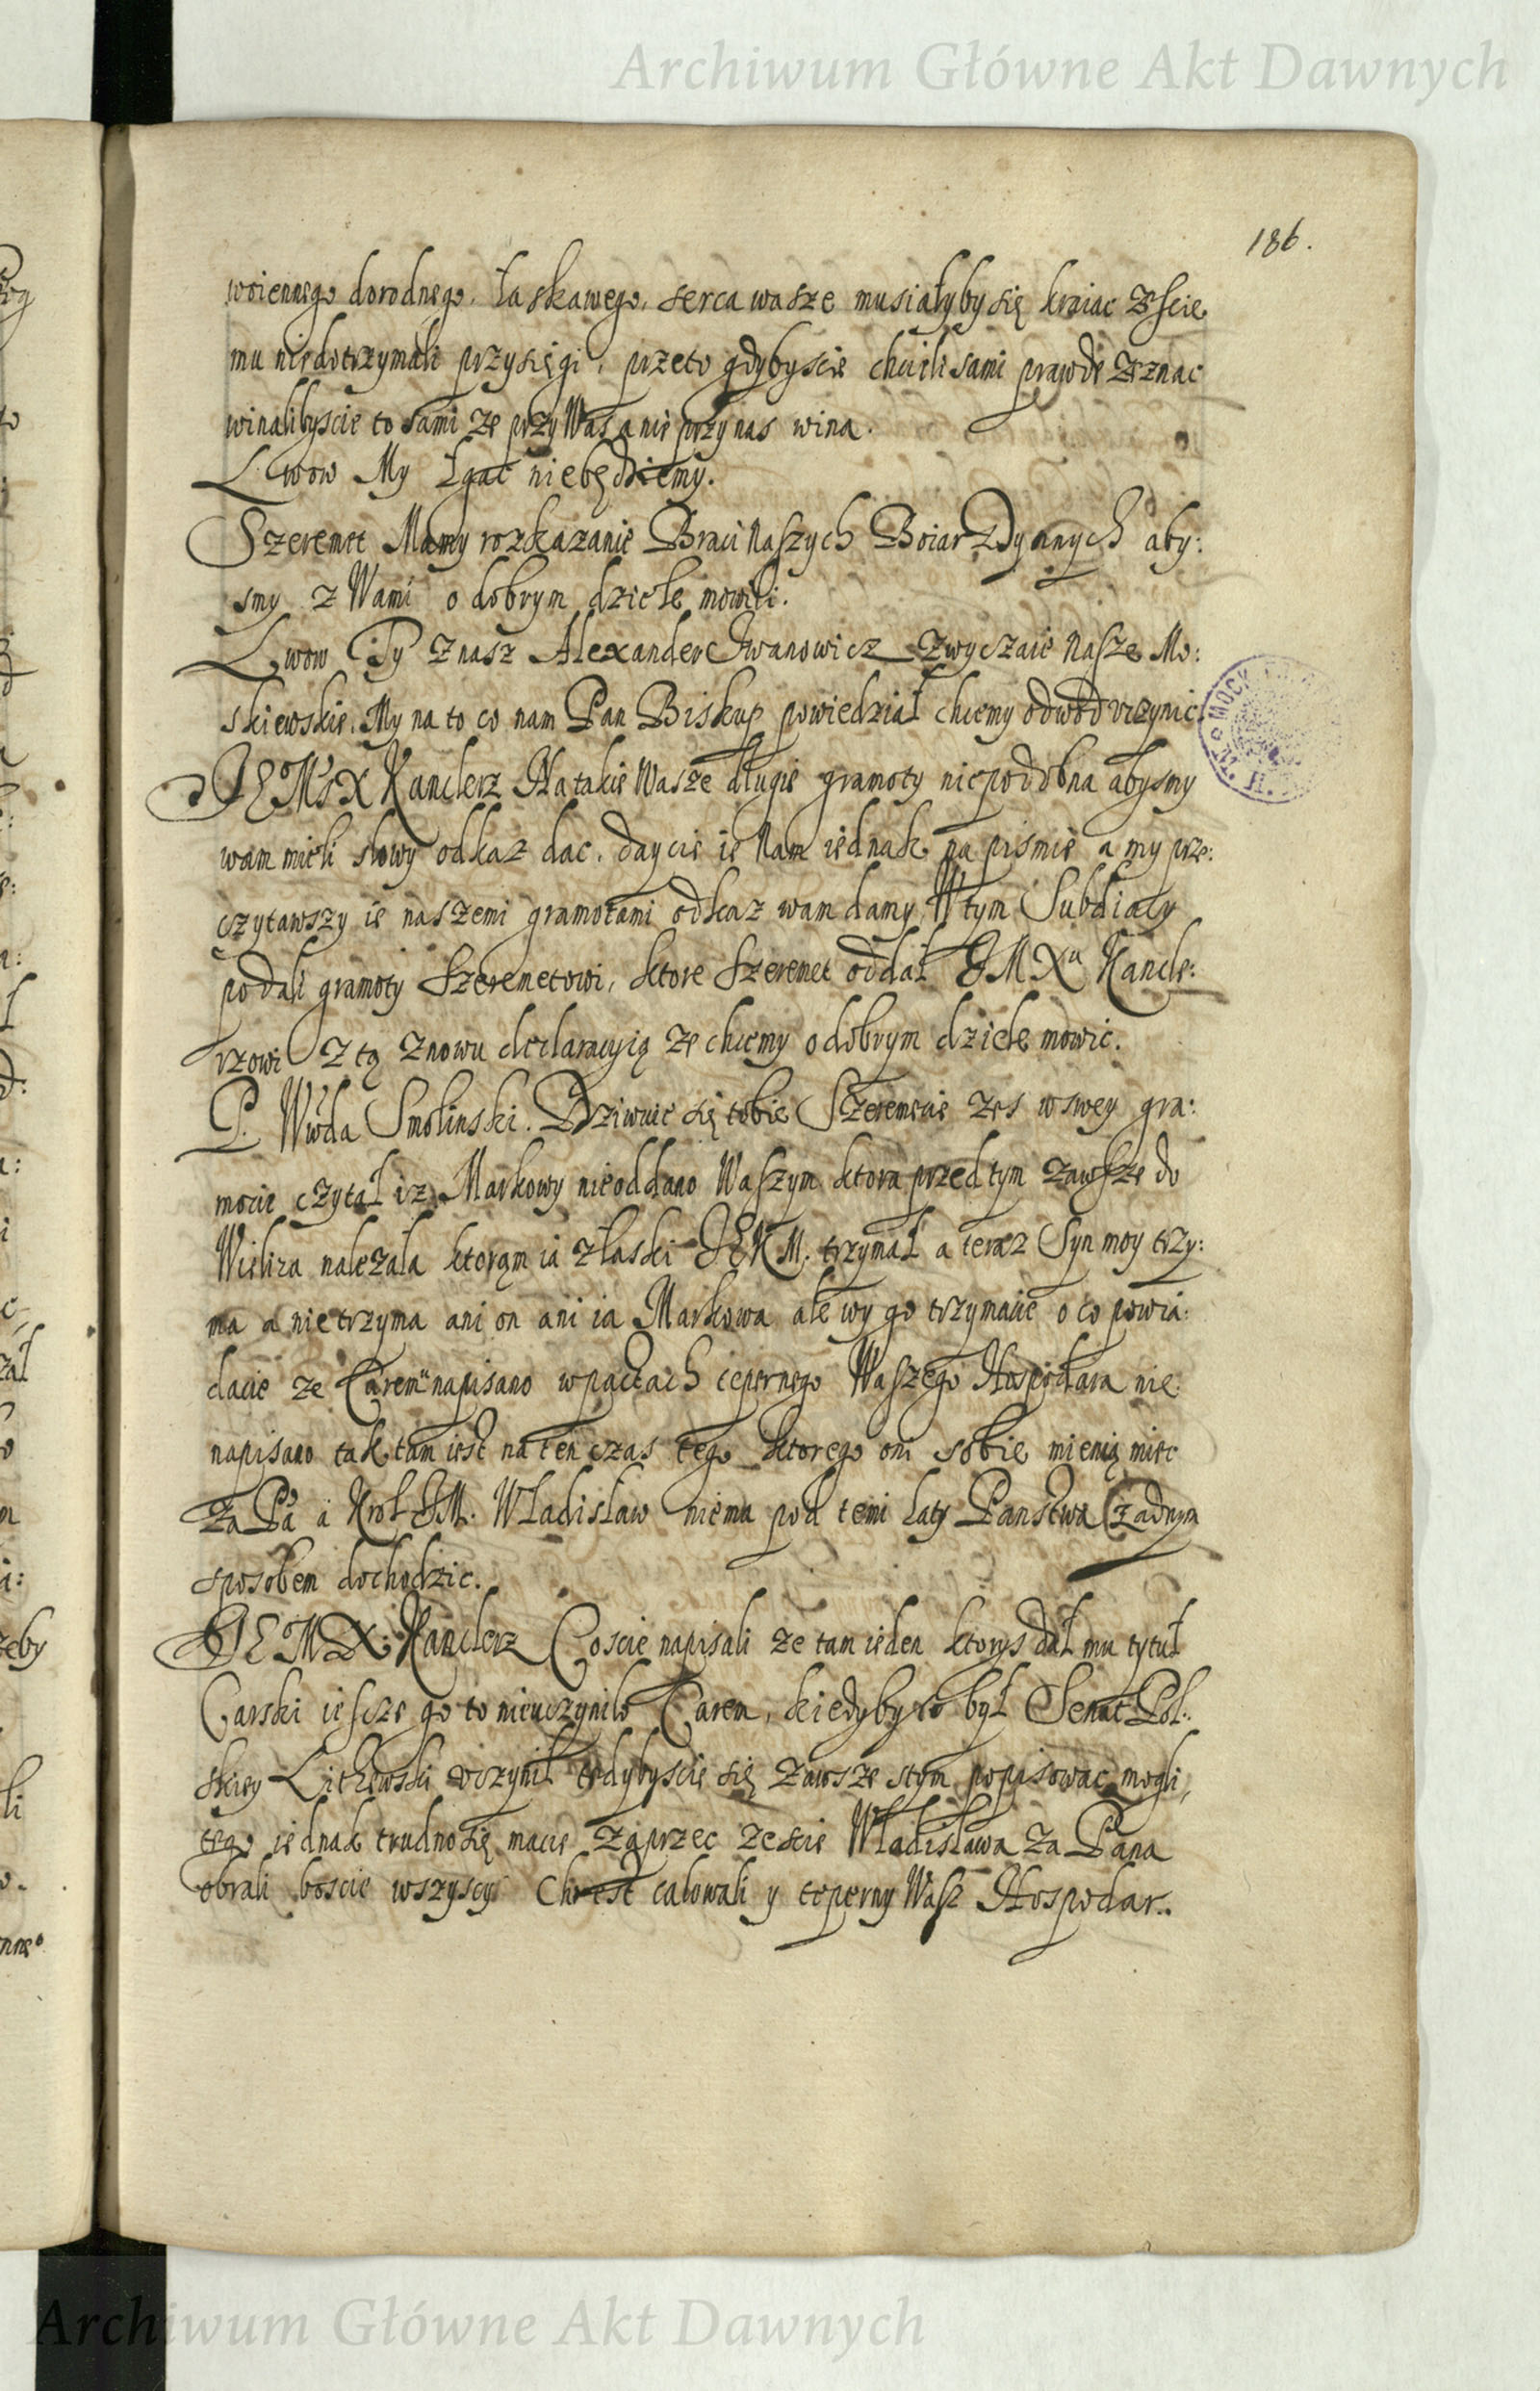 Archiwum Główne Akt Dawnych
186.
woiennego dorodnego, łaskawego, serca wasze musiałyby się kraiac zescie
mu niedotrzymali przysięgi, przeto gdybyscie chcieli sami prawdę zeznac
winalibyscie to sami ze przy Was a nie przy nas wina.
Lwow My łgac niebędziemy.
Szeremet Mamy rozkazanie Braci Naszych Boiar Dymnych aby:
smy z Wami o dobrym dziele mowili.
Lwow Ty znasz Alexander Iwanowicz zwyczaie Nasze Mo:
skiewskie. My na to co nam Pan Biskup powiedział chcemy odwod uczynic
JEMśX Kanclerz Na takie Wasze długie gramoty niepodobna abysmy
wam mieli słowy odkaz dac, daycie ie Nam iednak na pismie a my prze:
czytawszy ie naszemi gramotami odkaz wam damy, W tym Subdiacy
podali gramoty Szeremetowi, ktore Szeremet oddał EMXu Kancle:
rzowi z tą znowu declaracyią ze chcemy o dobrym dziele mowic.
P. Wwda Smolinski. Dziwuie się tobie Szeremecie zes w swey gra:
mocie czytał iz Markowy nieoddano Waszym ktora przed tym zawsze do
Wieliza nalezala ktorąm ia z łaski JEKM. trzymał a teraz Syn moy trzy:
ma a nie trzyma ani on ani ia Markowa ale wy go trzymacie o co powia:
dacie ze Carem napisano w pactach tepernego Waszego Hospodara nie
napisano tak tam iest na ten czas tego ktorego oni sobie mienią miec
za Pa a Krol EM. Władisław niema pod temi laty Panstwa zadnym
sposobem dochodzic.
JEMX Kanclerz Coscie napisali ze tam ieden ktorys dał mu tytuł
Carski iescze go to nieuczyniło Carem, kiedyby to był Senat Pol:
skiey Litewski uczynił tedybyscie się zawsze s tym popisowac mogli,
tego iednak trudno się macie zaprzec zescie Władisława za Pana
obrali boscie wszyscy Chrest całowali y teperny Wasz Hospodar..
Archiwum Główne Akt Dawnych